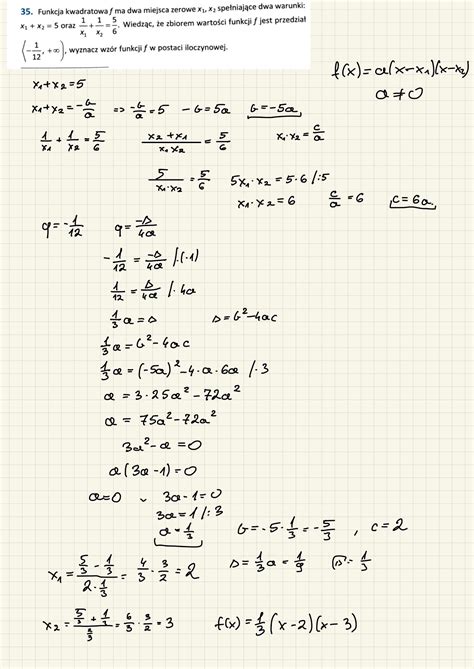 35. Funkcja kwadratowa f ma dwa miejsca zerowe x₁, x₂ spełniające dwa warunki:
x₁ + x₂ = 5 oraz 1/x₁ + 1/x₂ = 5/6. Wiedząc, że zbiorem wartości funkcji f jest przedział
⟨-1/12, +∞), wyznacz wzór funkcji f w postaci iloczynowej.
f(x) = a(x-x₁)(x-x₂)
a ≠ 0
x₁+x₂ = 5
x₁+x₂ = -b/a => -b/a = 5 -b = 5a b = -5a
1/x₁ + 1/x₂ = 5/6 (x₂+x₁)/(x₁x₂) = 5/6 x₁·x₂ = c/a
5/(x₁·x₂) = 5/6 5x₁·x₂ = 5·6 /:5
x₁·x₂ = 6 c/a = 6 c = 6a
q = -1/12 q = -Δ/4a
-1/12 = -Δ/4a /·(-1)
1/12 = Δ/4a /·4a
1/3 a = Δ Δ = b²-4ac
1/3 a = b²-4ac
1/3 a = (-5a)² - 4·a·6a /·3
a = 3·25a² - 72a²
a = 75a² - 72a²
3a² - a = 0
a(3a-1) = 0
a=0 ∨ 3a-1=0
3a = 1 /:3
a = 1/3 b = -5·1/3 = -5/3 , c = 2
x₁ = (5/3 - 1/3)/(2·1/3) = 4/3 · 3/2 = 2 Δ = 1/3 a = 1/9 √Δ = 1/3
x₂ = (5/3 + 1/3)/(2/3) = 6/3 · 3/2 = 3 f(x) = 1/3 (x-2)(x-3)